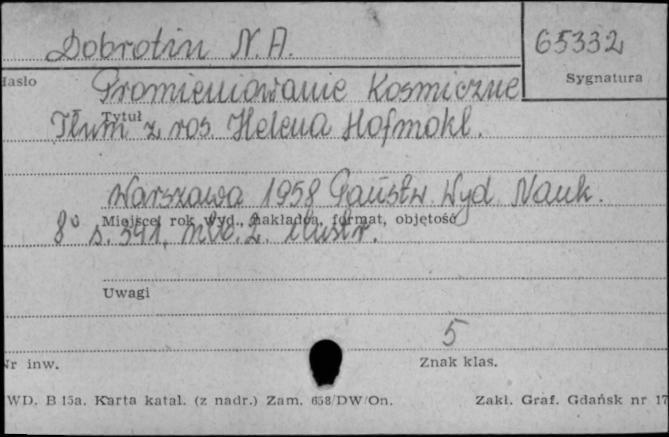 Dobrotin N.A.
65332
Hasło
Sygnatura
Promieniowanie Kosmiczne
Tytuł
Tłum z ros. Helena Hofmokl.
Warszawa 1958 Państw Wyd Nauk.
Miejsce, rok wyd., nakładca, format, objętość
8° s. 391, nlb. 2. ilustr.
Uwagi
5
Nr inw.
Znak klas.
WD. B 15a. Karta katal. (z nadr.) Zam. 658/DW/On.
Zakł. Graf. Gdańsk nr 17